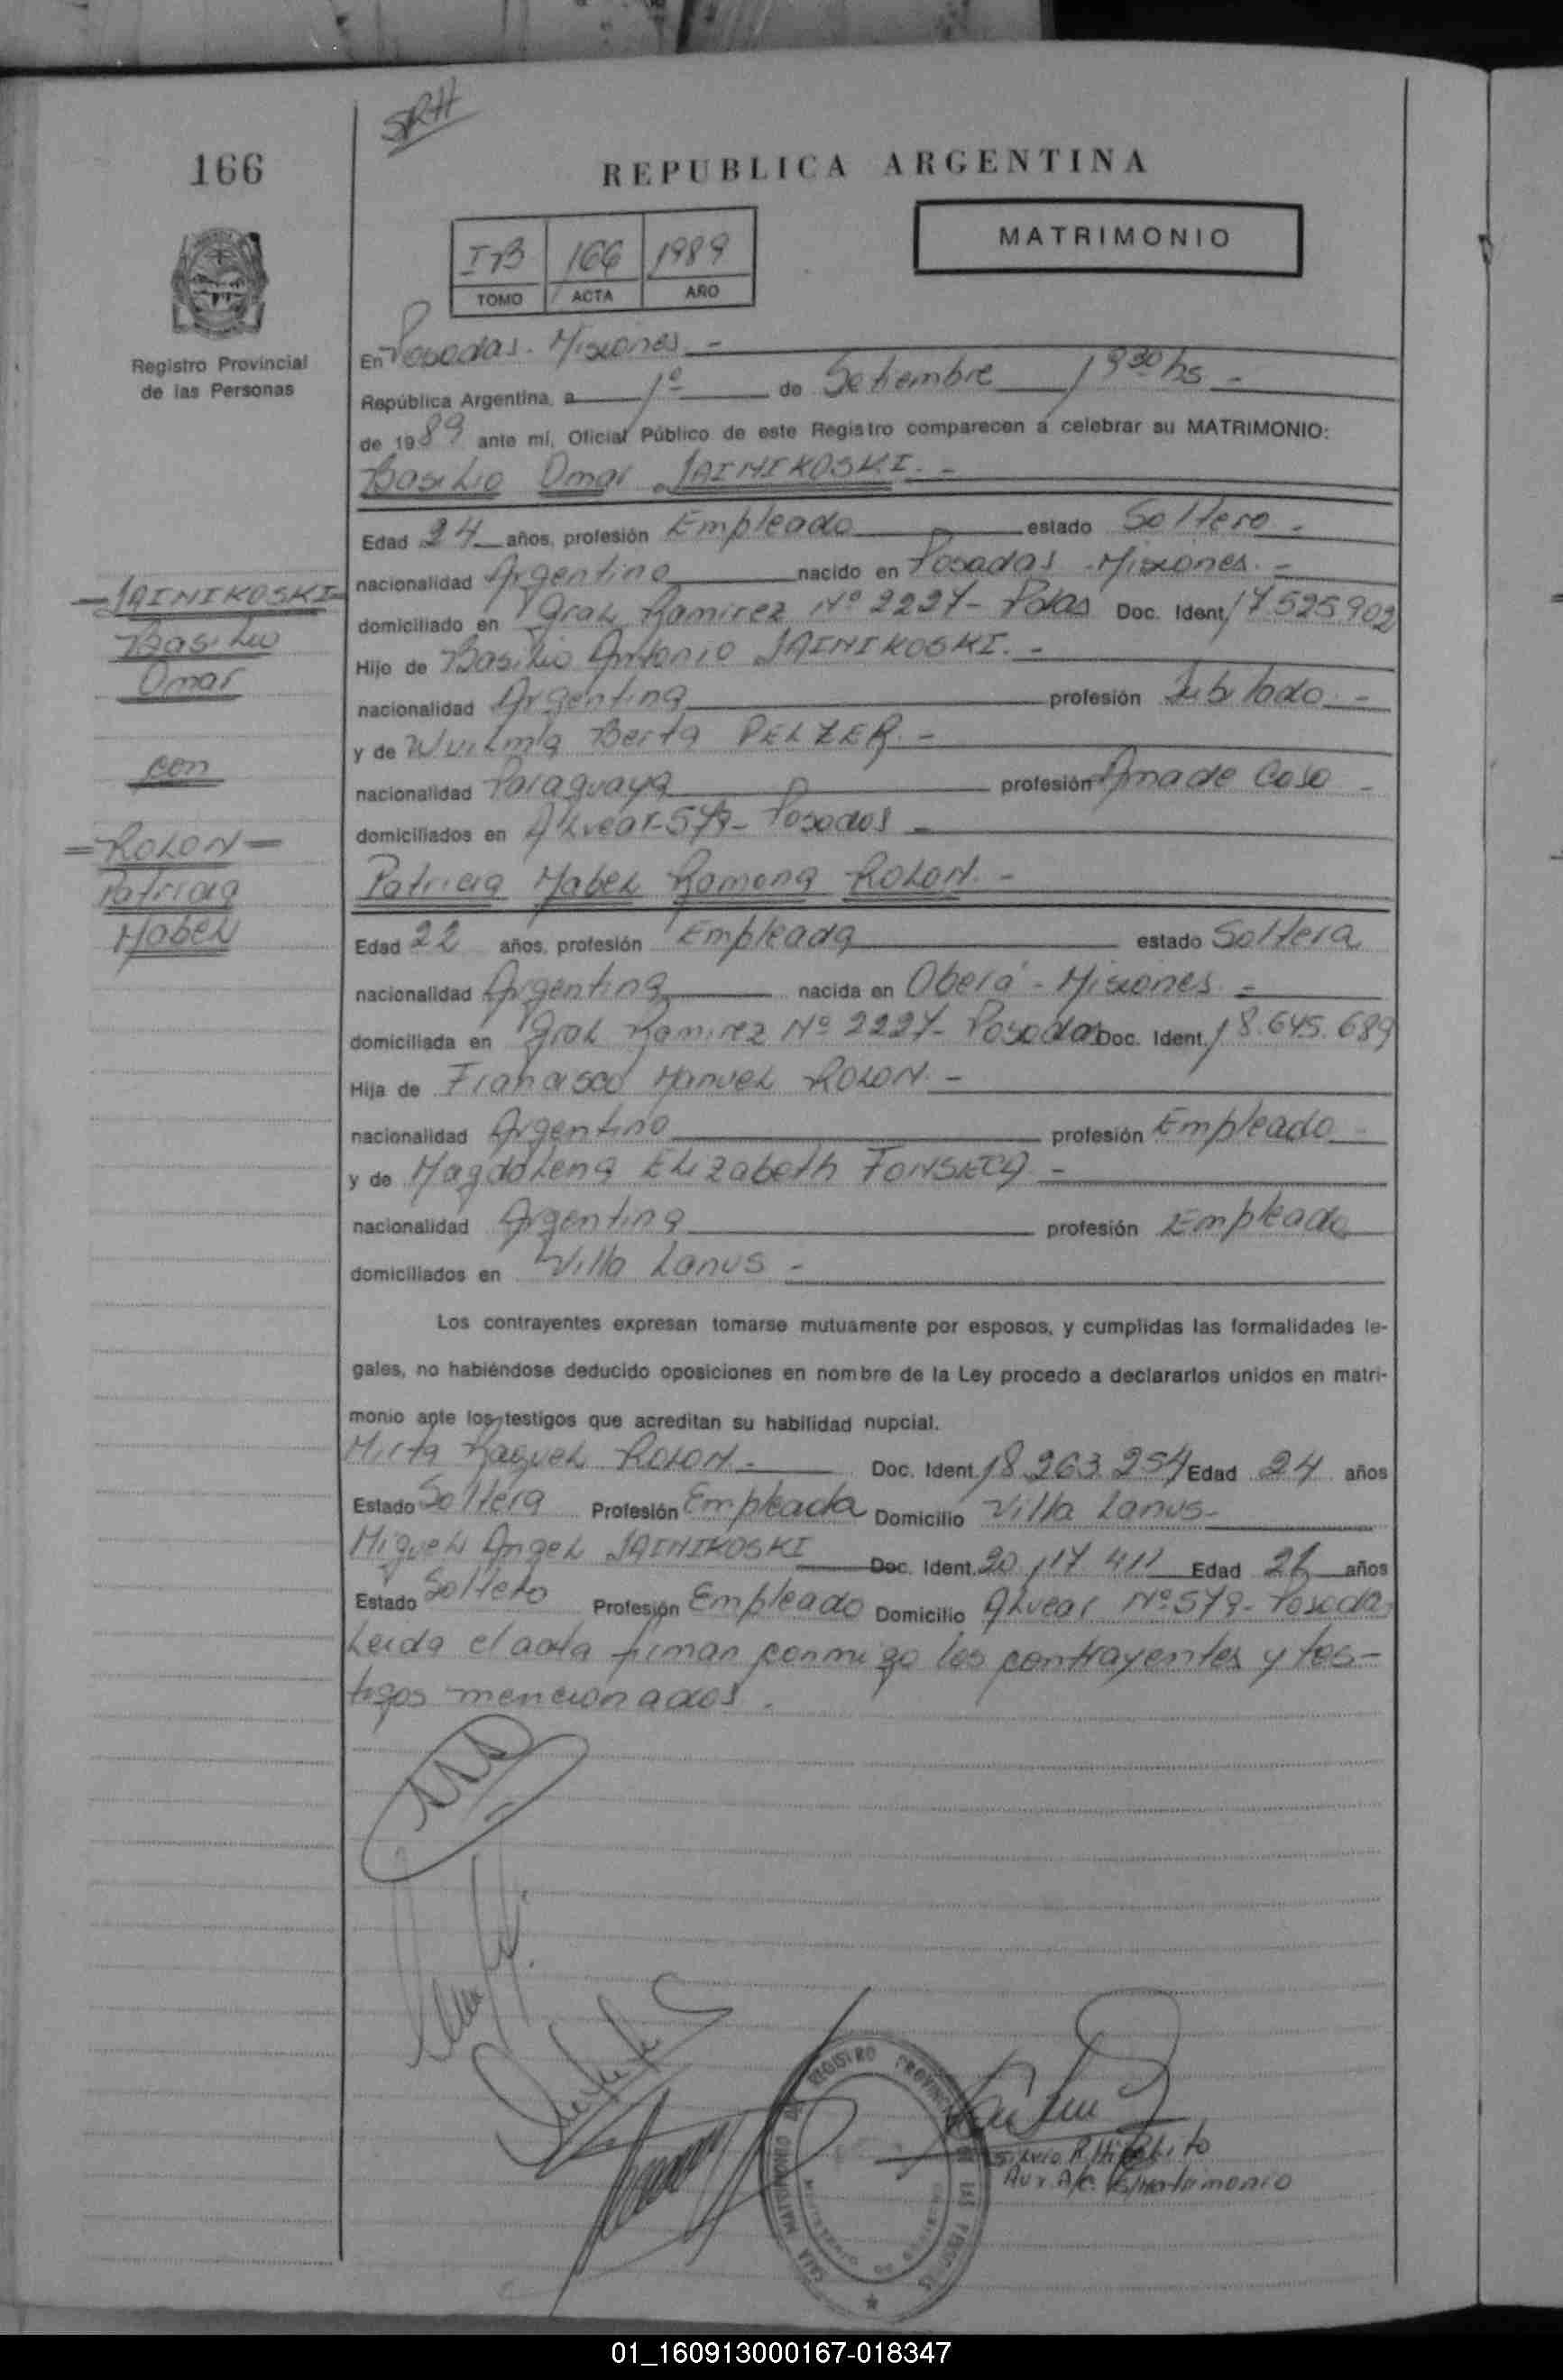 SRH
166
REPUBLICA ARGENTINA
MATRIMONIO
I B 166 1989
TOMO ACTA AÑO
Registro Provincial
de las Personas
En Posadas - Misiones. -
República Argentina, a 1º de Setiembre 1930 hs -
de 1989 ante mí, Oficial Público de este Registro comparecen a celebrar su MATRIMONIO:
Basilio Omar JAINIKOSKI. -
Edad 24 años, profesión Empleado estado Soltero -
nacionalidad Argentino nacido en Posadas - Misiones. -
domiciliado en Gral Ramirez Nº 2227 - Pdas Doc. Ident. 17525902
Hijo de Basilio Antonio JAINIKOSKI. -
nacionalidad Argentina profesión Jubilado -
y de Wuilma Berta PELZER. -
nacionalidad Paraguaya profesión Ama de Casa -
domiciliados en Alvear - 579 - Posadas -
Patricia Mabel Ramona ROLON. -
Edad 22 años, profesión Empleada estado Soltera
nacionalidad Argentina nacida en Oberá - Misiones -
domiciliada en Gral Ramirez Nº 2227 - Posadas Doc. Ident. 18.645.689
Hija de Francisco Manuel ROLON. -
nacionalidad Argentino profesión Empleado -
y de Magdalena Elizabeth FONSECA -
nacionalidad Argentina profesión Empleada
domiciliados en Villa Lanus -
JAINIKOSKI
Basilio
Omar
con
ROLON
Patricia
Mabel
Los contrayentes expresan tomarse mutuamente por esposos, y cumplidas las formalidades le-
gales, no habiéndose deducido oposiciones en nombre de la Ley procedo a declararlos unidos en matri-
monio ante los testigos que acreditan su habilidad nupcial.
Mirta Raquel ROLON. - Doc. Ident. 18.263.254 Edad 24 años
Estado Soltera Profesión Empleada Domicilio Villa Lanus -
Miguel Angel JAINIKOSKI Doc. Ident. 20.117.411 Edad 21 años
Estado Soltero Profesión Empleado Domicilio Alvear Nº 579 - Posadas
Leida el acta firman conmigo los contrayentes y tes-
tigos mencionados.
REGISTRO PROVINCIAL DE LAS PERSONAS
Silvio R.
Aux. A/c.
01_160913000167-018347